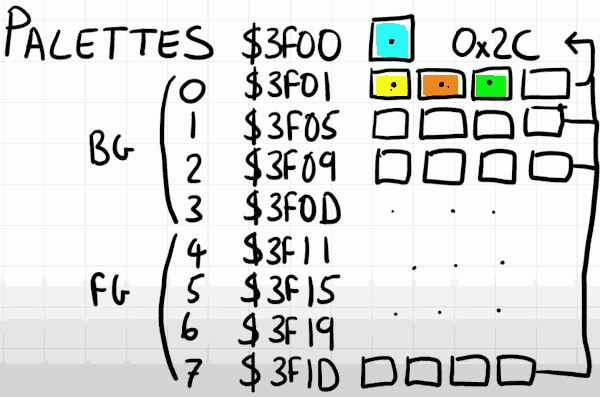 PALETTES $3F00 0x2C
0 $3F01
1 $3F05
BG
2 $3F09
3 $3F0D
4 $3F11
FG 5 $3F15
6 $3F19
7 $3F1D